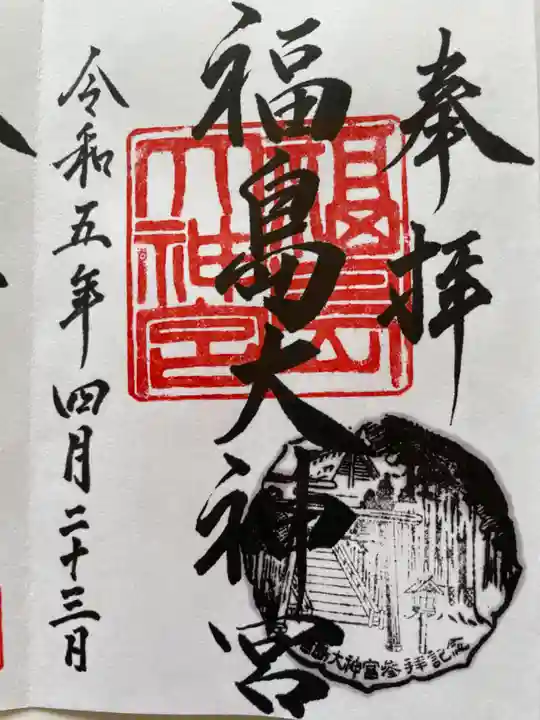 奉拝
福島大神宮
福島
大神宮
福島大神宮参拝記念
令和五年四月二十三日